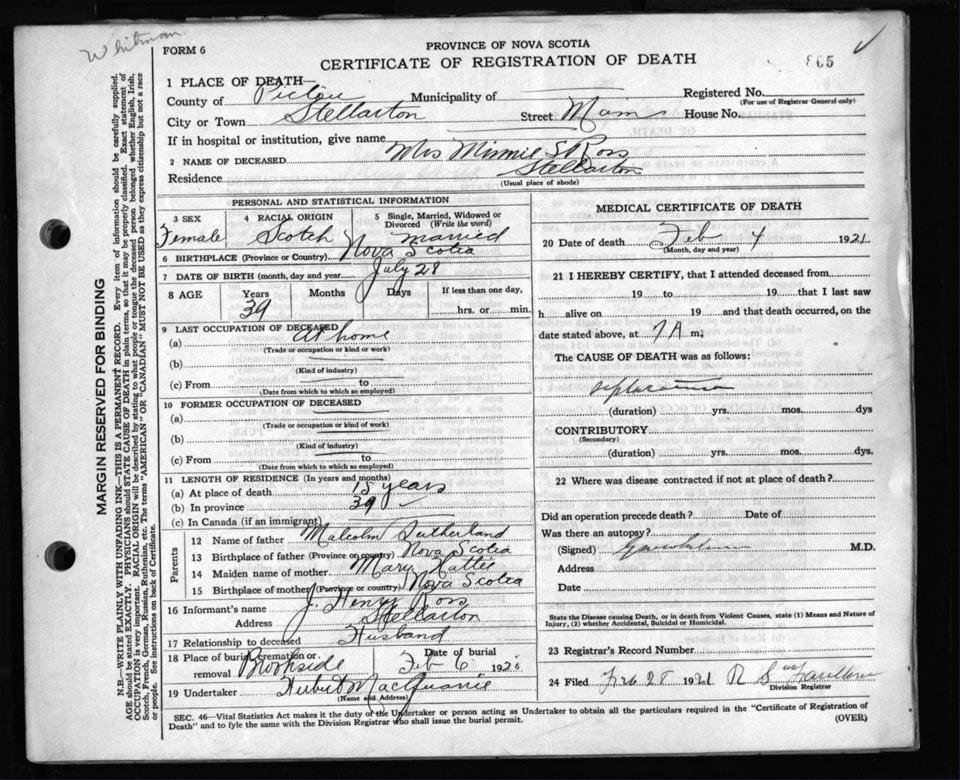 Whitman
FORM 6
PROVINCE OF NOVA SCOTIA
CERTIFICATE OF REGISTRATION OF DEATH
865
1 PLACE OF DEATH—
County of Pictou Municipality of
Registered No.
(For use of Registrar General only)
City or Town Stellarton Street Main House No.
If in hospital or institution, give name
2 NAME OF DECEASED Mrs Minnie S Ross
Residence Stellarton
(Usual place of abode)
MARGIN RESERVED FOR BINDING
N.B.—WRITE PLAINLY WITH UNFADING INK—THIS IS A PERMANENT RECORD. Every item of information should be carefully supplied.
AGE should be stated EXACTLY. PHYSICIANS should STATE CAUSE OF DEATH in plain terms, so that it may be properly classified. Exact statement of
OCCUPATION is very important. RACIAL ORIGIN will be described by stating to what people or tongue the deceased person belonged whether English, Irish,
Scotch, French, German, Russian, Ruthenian, etc. The terms "AMERICAN" OR "CANADIAN" MUST NOT BE USED as they express citizenship but not a race
or people. See instructions on back of Certificate.
PERSONAL AND STATISTICAL INFORMATION
3 SEX
Female
4 RACIAL ORIGIN
Scotch
5 Single, Married, Widowed or
Divorced (Write the word)
Married
6 BIRTHPLACE (Province or Country) Nova Scotia
7 DATE OF BIRTH (month, day and year) July 28
8 AGE Years Months Days If less than one day,
39 hrs. or min.
9 LAST OCCUPATION OF DECEASED
(a) At home
(Trade or occupation or kind of work)
(b)
(Kind of industry)
(c) From to
(Date from which to which so employed)
10 FORMER OCCUPATION OF DECEASED
(a)
(Trade or occupation or kind of work)
(b)
(Kind of industry)
(c) From to
(Date from which to which so employed)
11 LENGTH OF RESIDENCE (In years and months)
(a) At place of death 15 years
(b) In province 39
(c) In Canada (if an immigrant)
Parents
12 Name of father Malcolm Sutherland
13 Birthplace of father (Province or country) Nova Scotia
14 Maiden name of mother Mary
15 Birthplace of mother (Province or country) Nova Scotia
16 Informant's name J. Henry Ross
Address Stellarton
17 Relationship to deceased Husband
18 Place of burial, cremation or
removal Brookside
Date of burial
Feb 6 192
19 Undertaker
(Name and Address)
MEDICAL CERTIFICATE OF DEATH
20 Date of death Feb 4 1921
(Month, day and year)
21 I HEREBY CERTIFY, that I attended deceased from
19 to 19 that I last saw
h alive on 19 and that death occurred, on the
date stated above, at 7 A m.
The CAUSE OF DEATH was as follows:
(duration) yrs. mos. dys
CONTRIBUTORY
(Secondary)
(duration) yrs. mos. dys.
22 Where was disease contracted if not at place of death?
Did an operation precede death? Date of
Was there an autopsy?
(Signed) M.D.
Address
Date
State the Disease causing Death, or in death from Violent Causes, state (1) Means and Nature of
Injury, (2) whether Accidental, Suicidal or Homicidal.
23 Registrar's Record Number
24 Filed Feb 28 1921 R S
Division Registrar
SEC. 46—Vital Statistics Act makes it the duty of the Undertaker or person acting as Undertaker to obtain all the particulars required in the "Certificate of Registration of
Death" and to fyle the same with the Division Registrar who shall issue the burial permit.
(OVER)